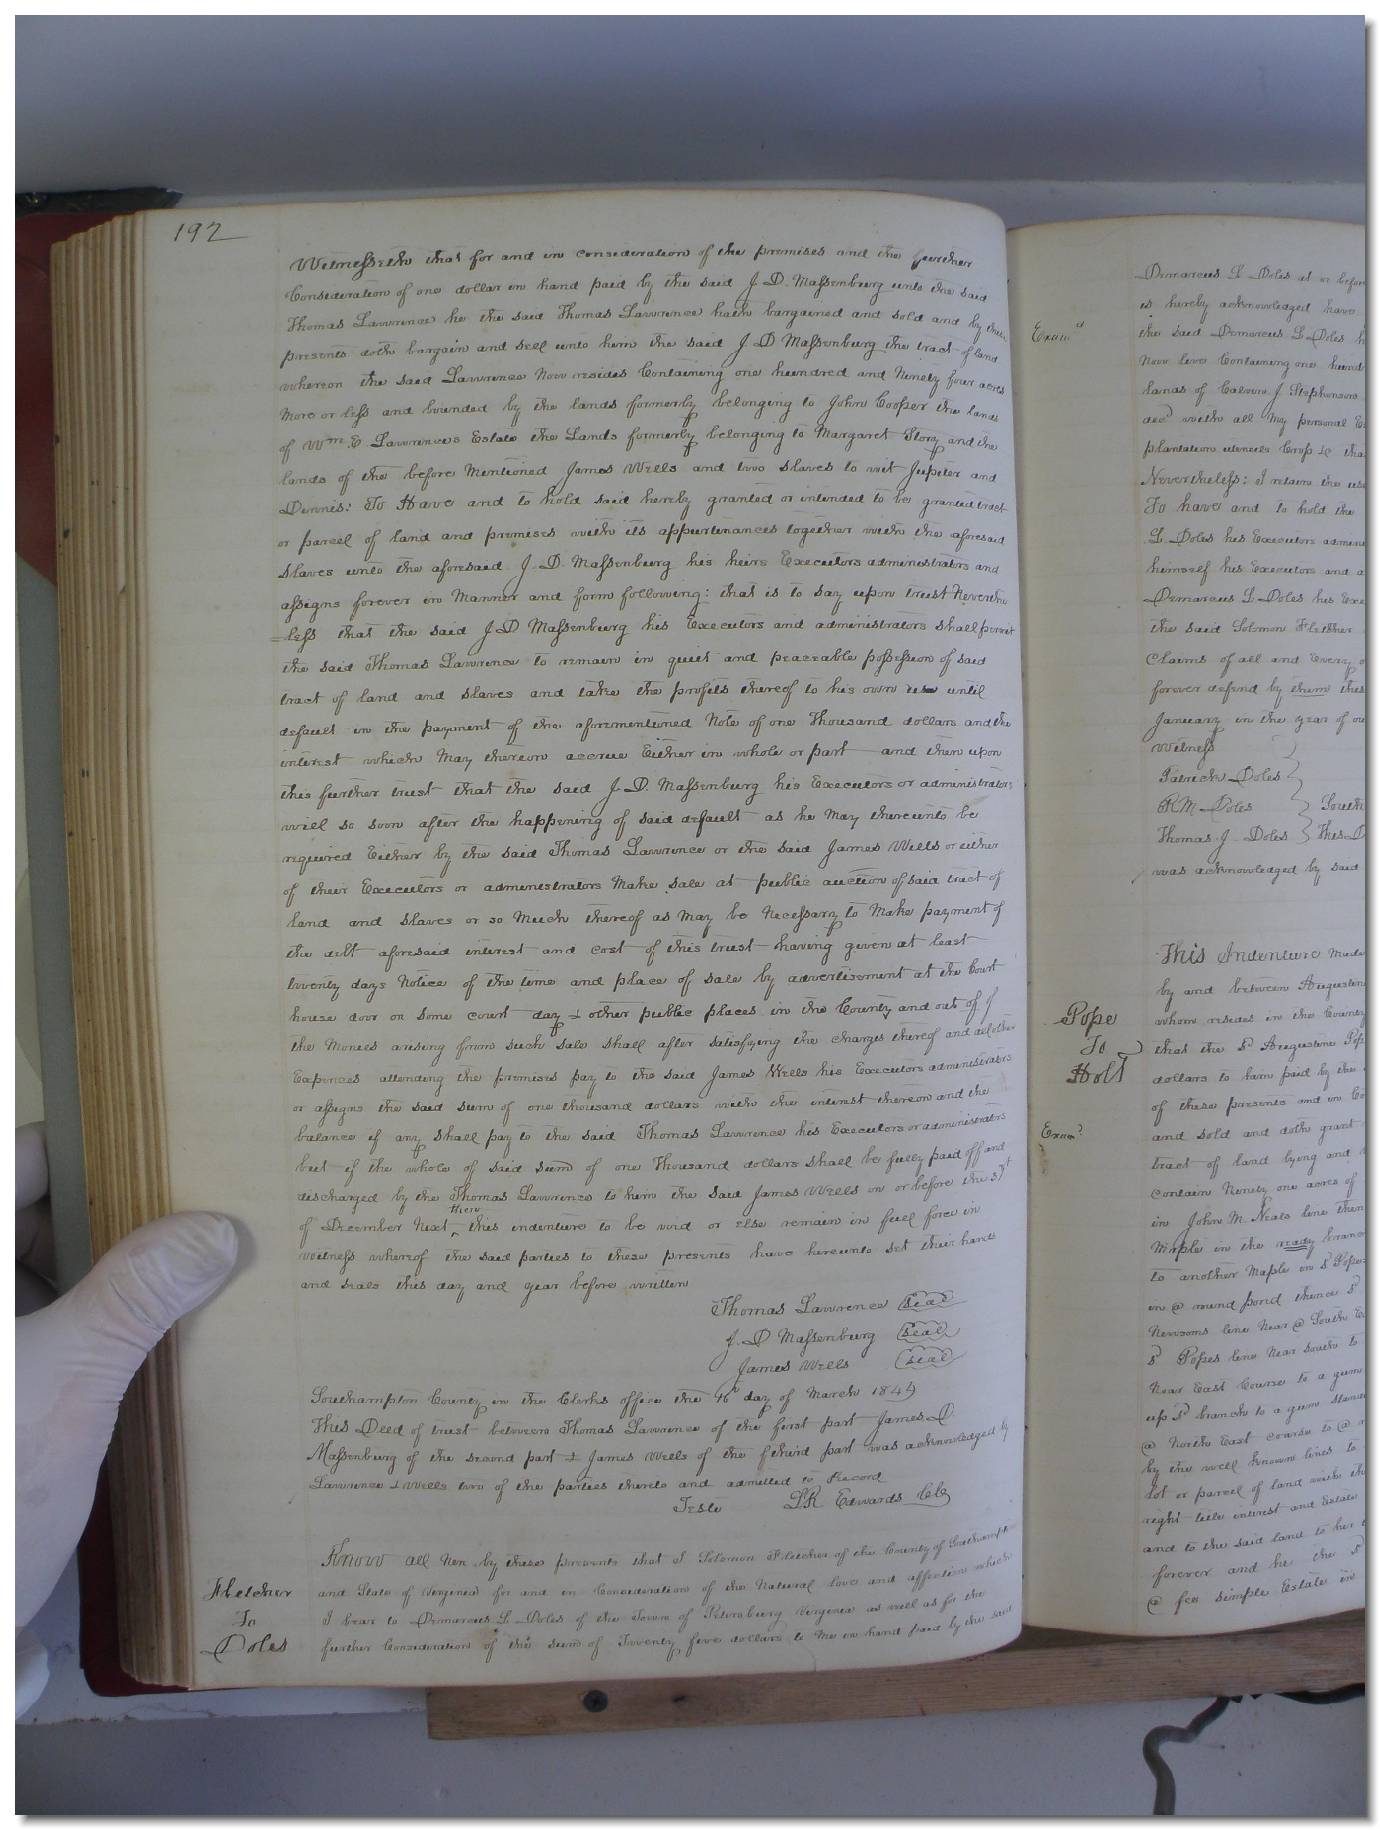 192
Witnesseth that for and in consideration of the premises and the further
Consideration of one dollar in hand paid by the said J. D. Massenburg unto the said
Thomas Lawrence he the said Thomas Lawrence hath bargained and sold and by these
presents doth bargain and sell unto him the said J D Massenburg the tract of land
whereon the said Lawrence Now resides Containing one hundred and Ninety four acres
More or less and bounded by the lands formerly belonging to John Cooper the lands
of Wm. E. Lawrences Estate the Lands formerly belonging to Margaret Story and the
lands of the before Mentioned James Wells and two slaves to wit Jupiter and
Dennis: To Have and to hold said hereby granted or intended to be granted tract
or parcel of land and premises with its appurtenances together with the aforesaid
slaves unto the aforesaid J. D. Massenburg his heirs Executors administrators and
assigns forever in Manner and form following: that is to say upon trust Neverthe
=less that the said J D Massenburg his Executors and administrators shall permit
the said Thomas Lawrence to remain in quiet and peaceable possession of said
tract of land and slaves and take the profits thereof to his own use until
default in the payment of the aforementioned Note of one Thousand dollars and the
interest which May thereon accrue Either in whole or part and then upon
this further trust that the said J. D. Massenburg his Executors or administrators
will so soon after the happening of said default as he May thereunto be
required Either by the said Thomas Lawrence or the said James Wells or either
of their Executors or administrators Make sale at public auction of said tract of
land and slaves or so Much thereof as May be Necessary to Make payment of
the debt aforesaid interest and cost of this trust having given at least
twenty days Notice of the time and place of sale by advertisement at the Court
house door on some court day & other public places in the County and out of
the Monies arising from such sale shall after satisfying the charges thereof and all other
Expences attending the premises pay to the said James Wells his Executors administrators
or assigns the said sum of one thousand dollars with the interest thereon and the
balance if any shall pay to the said Thomas Lawrence his Executors or administrators
but if the whole of said sum of one Thousand dollars shall be fully paid off and
discharged by the Thomas Lawrence to him the said James Wells on or before the 31st
of December Next then this indenture to be void or else remain in full force in
witness whereof the said parties to these presents have hereunto set their hands
and seals this day and year before written
Thomas Lawrence seal
J. D Massenburg seal
James Wells seal
Southampton County in the Clerks office the 16th day of March 1844
This Deed of trust between Thomas Lawrence of the first part James D.
Massenburg of the second part & James Wells of the third part was acknowledged by
Lawrence & Wells two of the parties thereto and admitted to Record
Teste L.R Edwards Clk
Fletcher
To
Doles
Know all Men by these presents that I Solomon Fletcher of the County of Southampton
and State of Virginia for and in Consideration of the Natural love and affection which
I bear to Demarcus L. Doles of the Town of Petersburg Virginia as well as for the
further Consideration of the sum of Twenty five dollars to Me in hand paid by the said
Demarcus L Doles at or before
is hereby acknowledged have
Examd
the said Demarcus L Doles
Now live Containing one hund
lands of Calvin J Stephenson
decd with all My personal
plantation utencils Crop &c
Nevertheless: I retain the use
To have and to hold the
L. Doles his Executors admin
himself his Executors and
Demarcus L Doles his Exe
the said Solomon Fletcher
Claims of all and Every
forever defend by them
January in the year of
Witness
Patrick Doles
R M Doles
Thomas J. Doles
South
This D
was acknowledged by said
This Indenture Made
by and between Augustin
whom resides in the County
Pope
To
Holt
that the sd Augustine Pop
dollars to him paid by the
of these presents and in
Examd
and sold and doth grant
tract of land lying and
contain Ninety one acres of
in John M. Neals line then
Maple in the ready branch
to another Maple in sd Popes
in @ round pond thence sd
Newsoms line Near @ South
sd Popes line Near South to
Near East Course to a gum
up sd branch to a gum
@ North East course to @
by the well known lines to
Lot or parcel of land with the
right title interest and Estate
and to the said land to her
forever and he the sd
@ fee simple Estate in